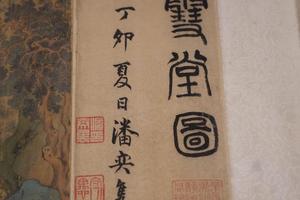 雪堂圖
丁卯夏日潘奕雋